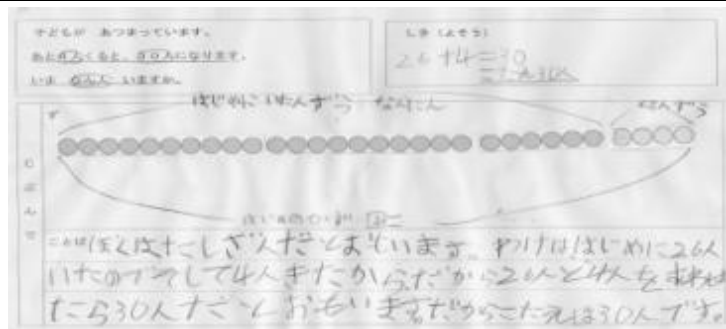 子どもが あつまっています。
あと4人くると、30人になります。
いま なん人 いますか。
しき（よそう）
26+4=30
はじめにいたんずう なんにん
ず
じぶんで
ことば ぼくはたしざんだとおもいます。わけははじめに26人
いたのでそして4人きたからだから26人と4人をあわせ
たら30人だとおもいます。だからこたえは30人です。